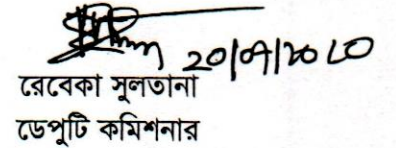 20/07/2020
রেবেকা সুলতানা
ডেপুটি কমিশনার